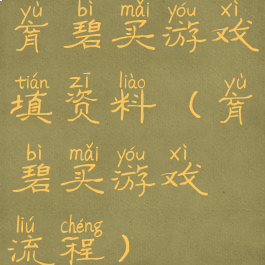 yù bì mǎi yóu xì
育碧买游戏
tián zī liào yù
填资料（育
bì mǎi yóu xì
碧买游戏
liú chéng
流程）